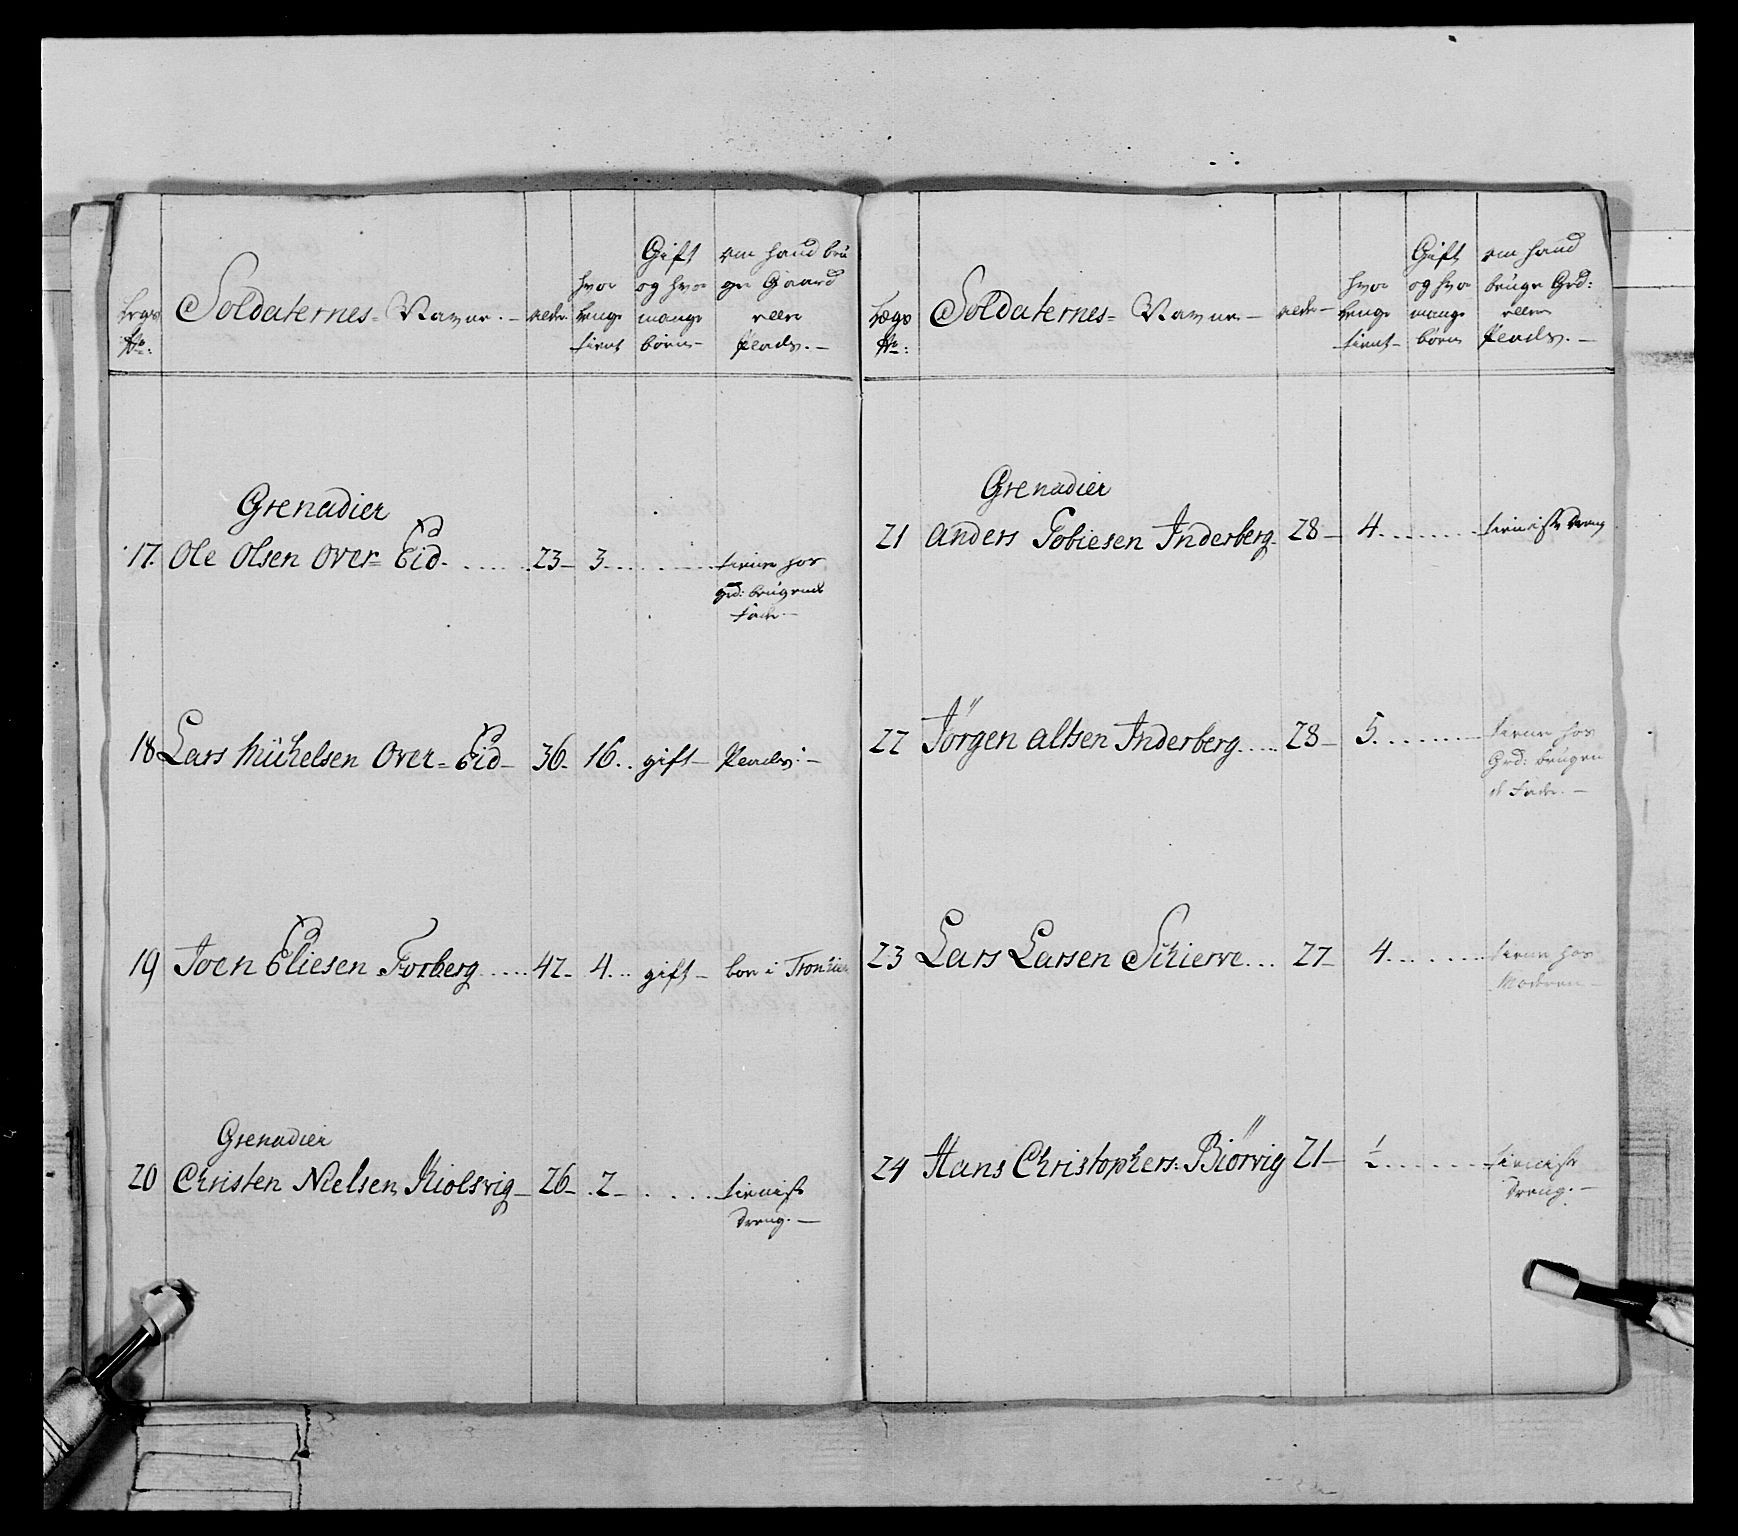 Legs
No:
Soldaternes= Navne. —
alder
hvor
lenge
tient
Gift
og hvor
mange
børn —
om hand bru
ger Gaard
eller
Plads. —
Grenadier
17. Ole Olsen Over= Eid. 23 — 3 tiener hos
grd: brugende
Fader —
18 Lars Michelsen Over= Eid — 36 — 16. gift — Plads. —
19 Joen Eliesen Forberg 42 — 4. gift — boer i Tronhiem
Grenadier
20 Christen Nielsen Kiolsvig — 26 — 2 — tieniste
dreng. —
Legs
No:
Soldaternes= Navne —
alder —
hvor
lenge
tient —
Gift
og hvor
mange
børn
om hand
bruger Grd:
eller
Plads. —
Grenadier
21 Anders Tobiesen Inderberg 28 — 4. tieniste dreng
22 Jörgen Altsen Inderberg 28 — 5. tiener hos
Grd: brugen
de Fader. —
23 Lars Larsen Schierve 27 — 4. tiener hos
Moderen —
24 Hans Christophers: Biörvig 21 — ½ tieniste
dreng. —